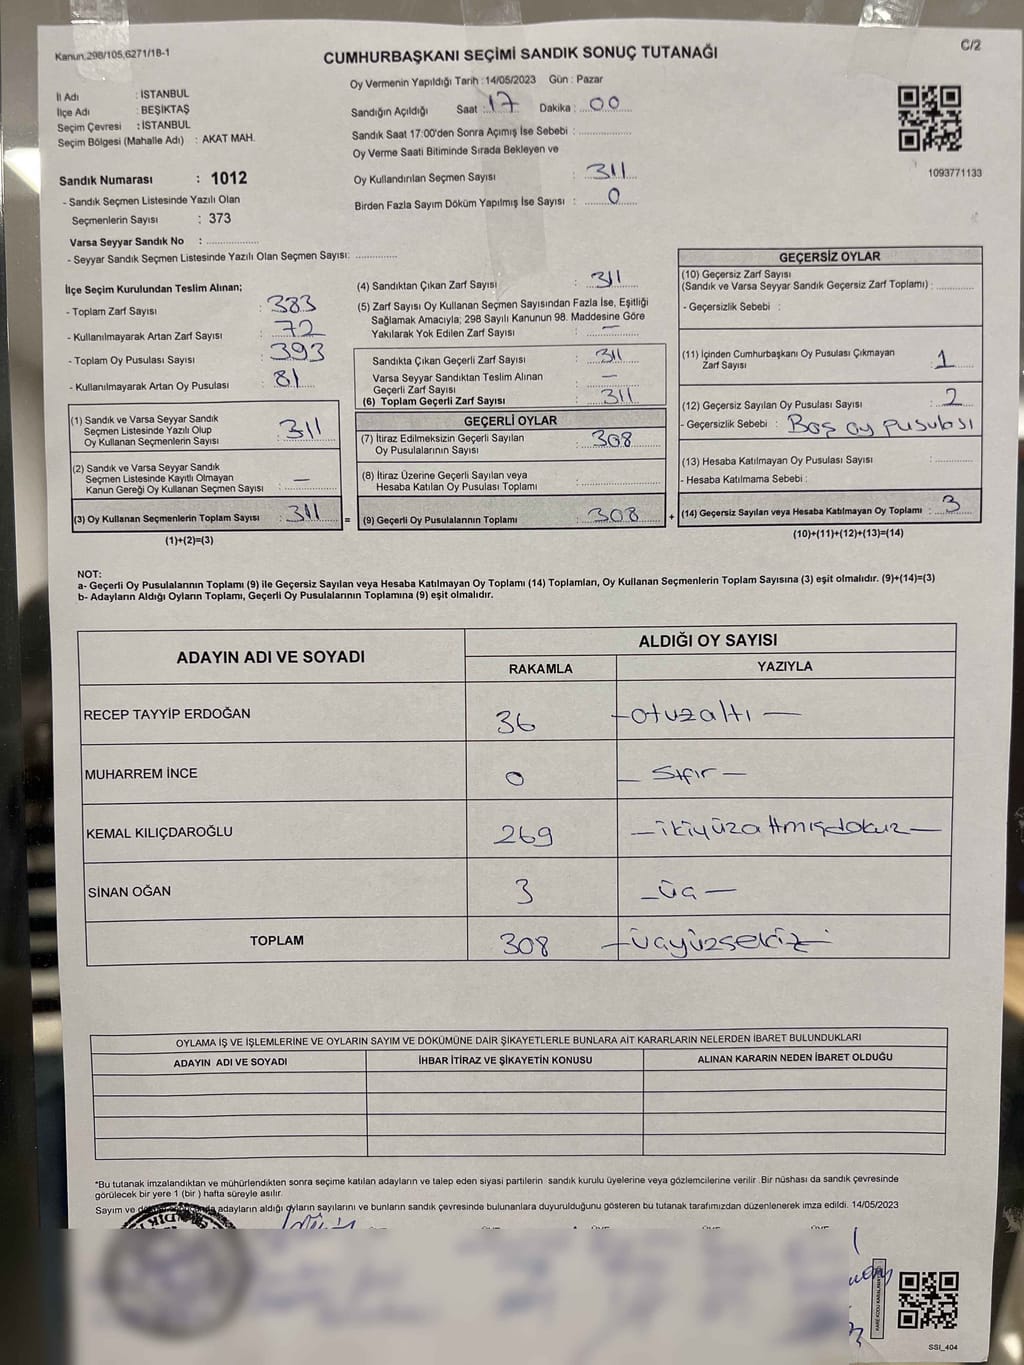 Kanun.298/105,6271/18-1
C/2
CUMHURBAŞKANI SEÇİMİ SANDIK SONUÇ TUTANAĞI
Oy Vermenin Yapıldığı Tarih :14/05/2023 Gün : Pazar
İl Adı : İSTANBUL
İlçe Adı : BEŞİKTAŞ
Seçim Çevresi : İSTANBUL
Seçim Bölgesi (Mahalle Adı) : AKAT MAH.
Sandığın Açıldığı Saat : 17 Dakika : 00
Sandık Saat 17:00'den Sonra Açımış İse Sebebi :
Oy Verme Saati Bitiminde Sırada Bekleyen ve
Oy Kullandırılan Seçmen Sayısı : 311
Birden Fazla Sayım Döküm Yapılmış İse Sayısı : 0
1093771133
Sandık Numarası : 1012
- Sandık Seçmen Listesinde Yazılı Olan
Seçmenlerin Sayısı : 373
Varsa Seyyar Sandık No :
- Seyyar Sandık Seçmen Listesinde Yazılı Olan Seçmen Sayısı:
İlçe Seçim Kurulundan Teslim Alınan;
- Toplam Zarf Sayısı : 383
- Kullanılmayarak Artan Zarf Sayısı : 72
- Toplam Oy Pusulası Sayısı : 393
- Kullanılmayarak Artan Oy Pusulası : 81
(1) Sandık ve Varsa Seyyar Sandık
Seçmen Listesinde Yazılı Olup
Oy Kullanan Seçmenlerin Sayısı : 311
(2) Sandık ve Varsa Seyyar Sandık
Seçmen Listesinde Kayıtlı Olmayan
Kanun Gereği Oy Kullanan Seçmen Sayısı : —
(3) Oy Kullanan Seçmenlerin Toplam Sayısı : 311 =
(1)+(2)=(3)
(4) Sandıktan Çıkan Zarf Sayısı : 311
(5) Zarf Sayısı Oy Kullanan Seçmen Sayısından Fazla İse, Eşitliği
Sağlamak Amacıyla; 298 Sayılı Kanunun 98. Maddesine Göre
Yakılarak Yok Edilen Zarf Sayısı : —
Sandıkta Çıkan Geçerli Zarf Sayısı : 311
Varsa Seyyar Sandıktan Teslim Alınan
Geçerli Zarf Sayısı : —
(6) Toplam Geçerli Zarf Sayısı : 311
GEÇERLİ OYLAR
(7) İtiraz Edilmeksizin Geçerli Sayılan
Oy Pusulalarının Sayısı : 308
(8) İtiraz Üzerine Geçerli Sayılan veya
Hesaba Katılan Oy Pusulası Toplamı :
(9) Geçerli Oy Pusulalarının Toplamı : 308 +
GEÇERSİZ OYLAR
(10) Geçersiz Zarf Sayısı
(Sandık ve Varsa Seyyar Sandık Geçersiz Zarf Toplamı) :
- Geçersizlik Sebebi :
(11) İçinden Cumhurbaşkanı Oy Pusulası Çıkmayan
Zarf Sayısı : 1
(12) Geçersiz Sayılan Oy Pusulası Sayısı : 2
- Geçersizlik Sebebi : Boş oy pusulası
(13) Hesaba Katılmayan Oy Pusulası Sayısı :
- Hesaba Katılmama Sebebi :
(14) Geçersiz Sayılan veya Hesaba Katılmayan Oy Toplamı : 3
(10)+(11)+(12)+(13)=(14)
NOT:
a- Geçerli Oy Pusulalarının Toplamı (9) ile Geçersiz Sayılan veya Hesaba Katılmayan Oy Toplamı (14) Toplamları, Oy Kullanan Seçmenlerin Toplam Sayısına (3) eşit olmalıdır. (9)+(14)=(3)
b- Adayların Aldığı Oyların Toplamı, Geçerli Oy Pusulalarının Toplamına (9) eşit olmalıdır.
ADAYIN ADI VE SOYADI
ALDIĞI OY SAYISI
RAKAMLA YAZIYLA
RECEP TAYYİP ERDOĞAN 36 —otuzaltı—
MUHARREM İNCE 0 — Sıfır —
KEMAL KILIÇDAROĞLU 269 —ikiyüzaltmışdokuz—
SİNAN OĞAN 3 —üç—
TOPLAM 308 —üçyüzsekiz—
OYLAMA İŞ VE İŞLEMLERİNE VE OYLARIN SAYIM VE DÖKÜMÜNE DAİR ŞİKAYETLERLE BUNLARA AİT KARARLARIN NELERDEN İBARET BULUNDUKLARI
ADAYIN ADI VE SOYADI İHBAR İTİRAZ VE ŞİKAYETİN KONUSU ALINAN KARARIN NEDEN İBARET OLDUĞU
*Bu tutanak imzalandıktan ve mühürlendikten sonra seçime katılan adayların ve talep eden siyasi partilerin sandık kurulu üyelerine veya gözlemcilerine verilir .Bir nüshası da sandık çevresinde
görülecek bir yere 1 (bir ) hafta süreyle asılır.
Sayım ve adayların aldığı oyların sayılarını ve bunların sandık çevresinde bulunanlara duyurulduğunu gösteren bu tutanak tarafımızdan düzenlenerek imza edildi. 14/05/2023
SSI_404